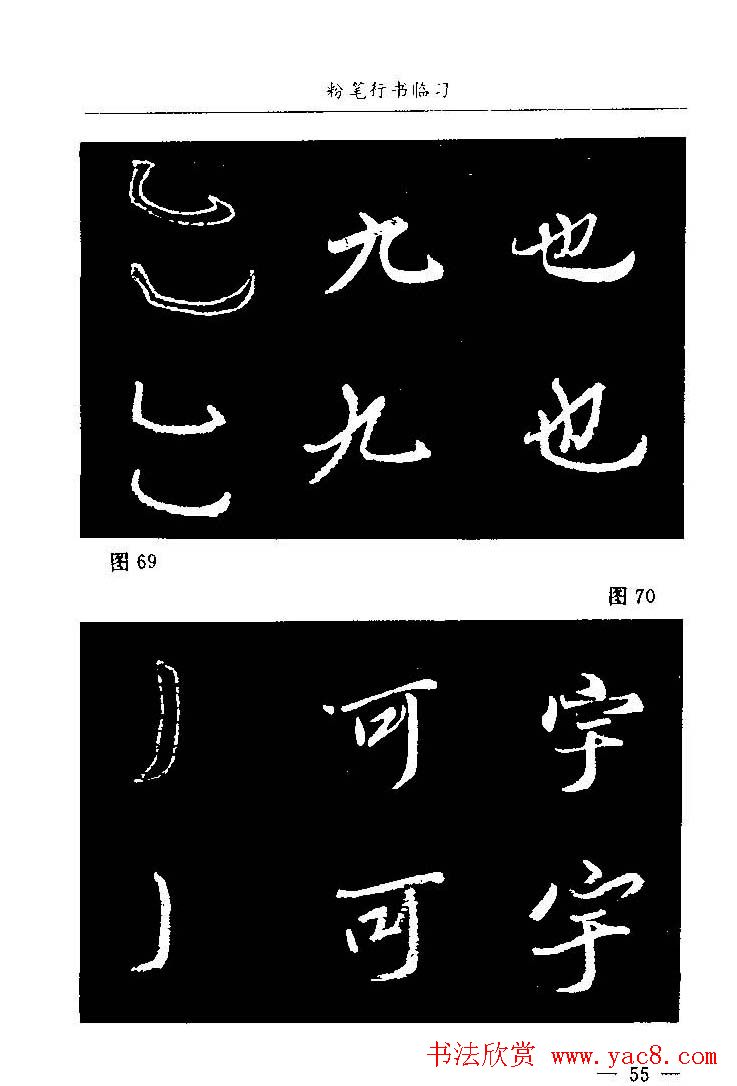 粉笔行书临习
九 也
九 也
图 69
图 70
可 宇
可 宇
书法欣赏 www.yac8.com
— 55 —